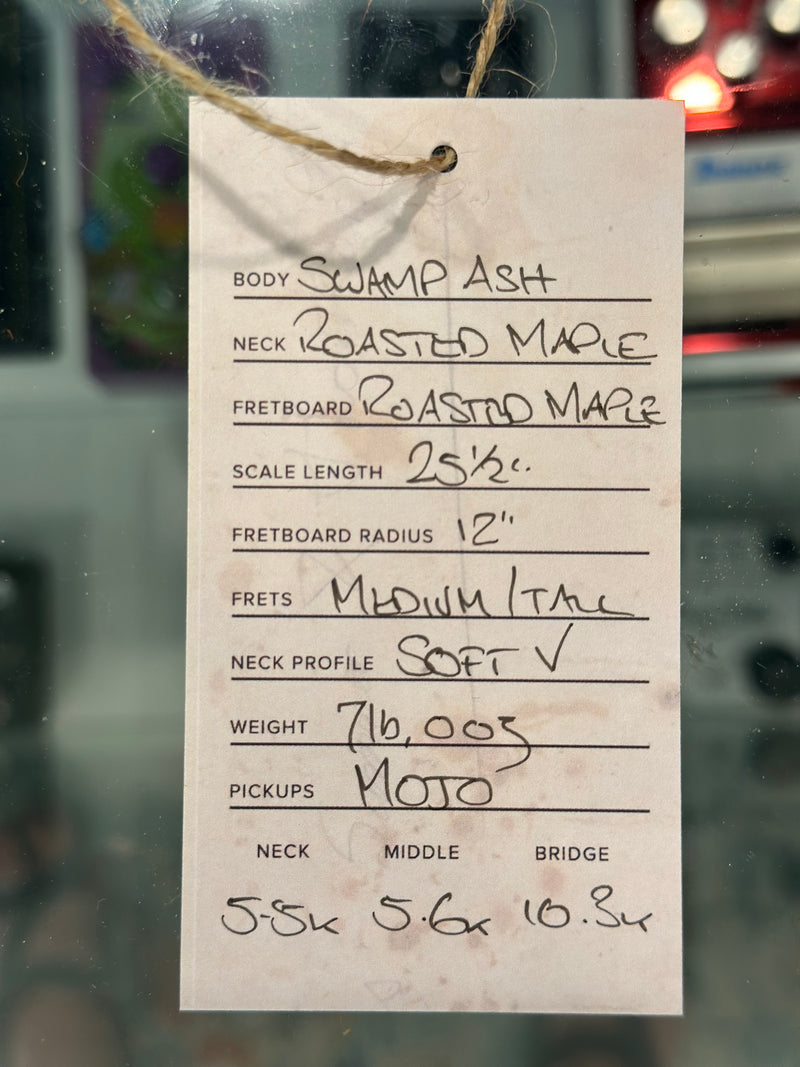 BODY SWAMP ASH
NECK ROASTED MAPLE
FRETBOARD ROASTED MAPLE
SCALE LENGTH 25 1/2"
FRETBOARD RADIUS 12"
FRETS MEDIUM / TALL
NECK PROFILE SOFT V
WEIGHT 7lb, 00z
PICKUPS MOJO
NECK MIDDLE BRIDGE
5.5K 5.6K 10.3K